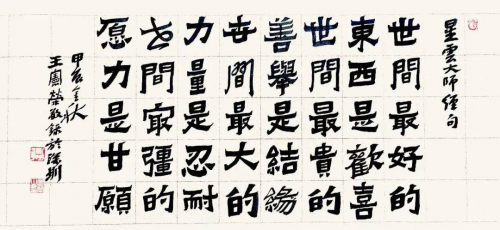 星雲大师經句
世間最好的
東西是歡喜
世間最貴的
善舉是結緣
世間最大的
力量是忍耐
世間最彊的
愿力是甘願
甲辰金秋
王國榮敬錄於深圳